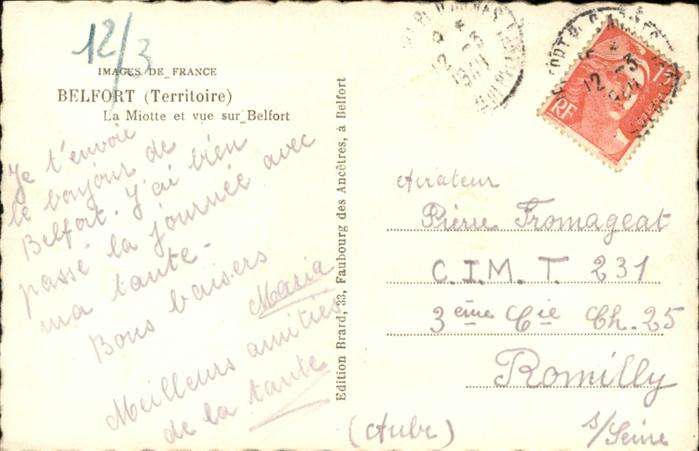 12/3
IMAGES DE FRANCE
BELFORT (Territoire)
La Miotte et vue sur Belfort
Je t'envoie
le bonjour de
Belfort. J'ai bien
passé la journée avec
ma tante.
Bons baisers
Maria
Meilleurs amitiés
de la tante
Edition Brard, 33, Faubourg des Ancêtres, à Belfort
12 -3
12 -3
RF
Pierre Fromageat
C.I.M.T. 231
3ème Cie Ch. 25
Romilly
s/Seine
(Aube)